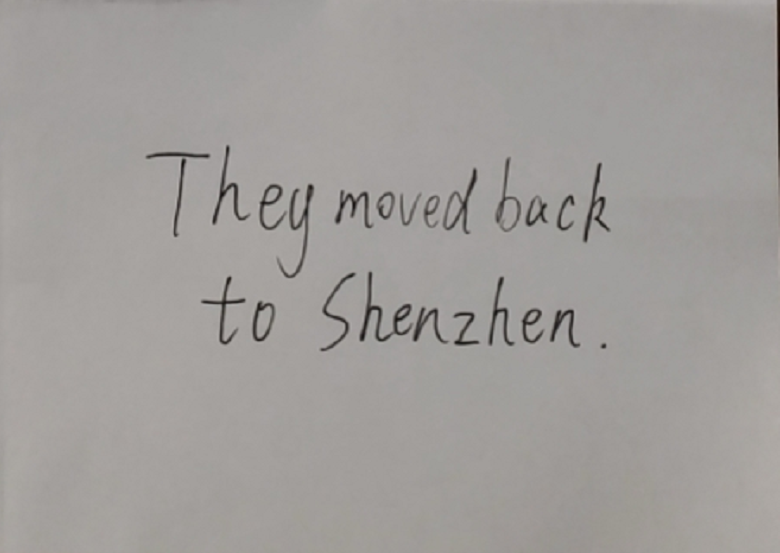 They moved back
to Shenzhen.